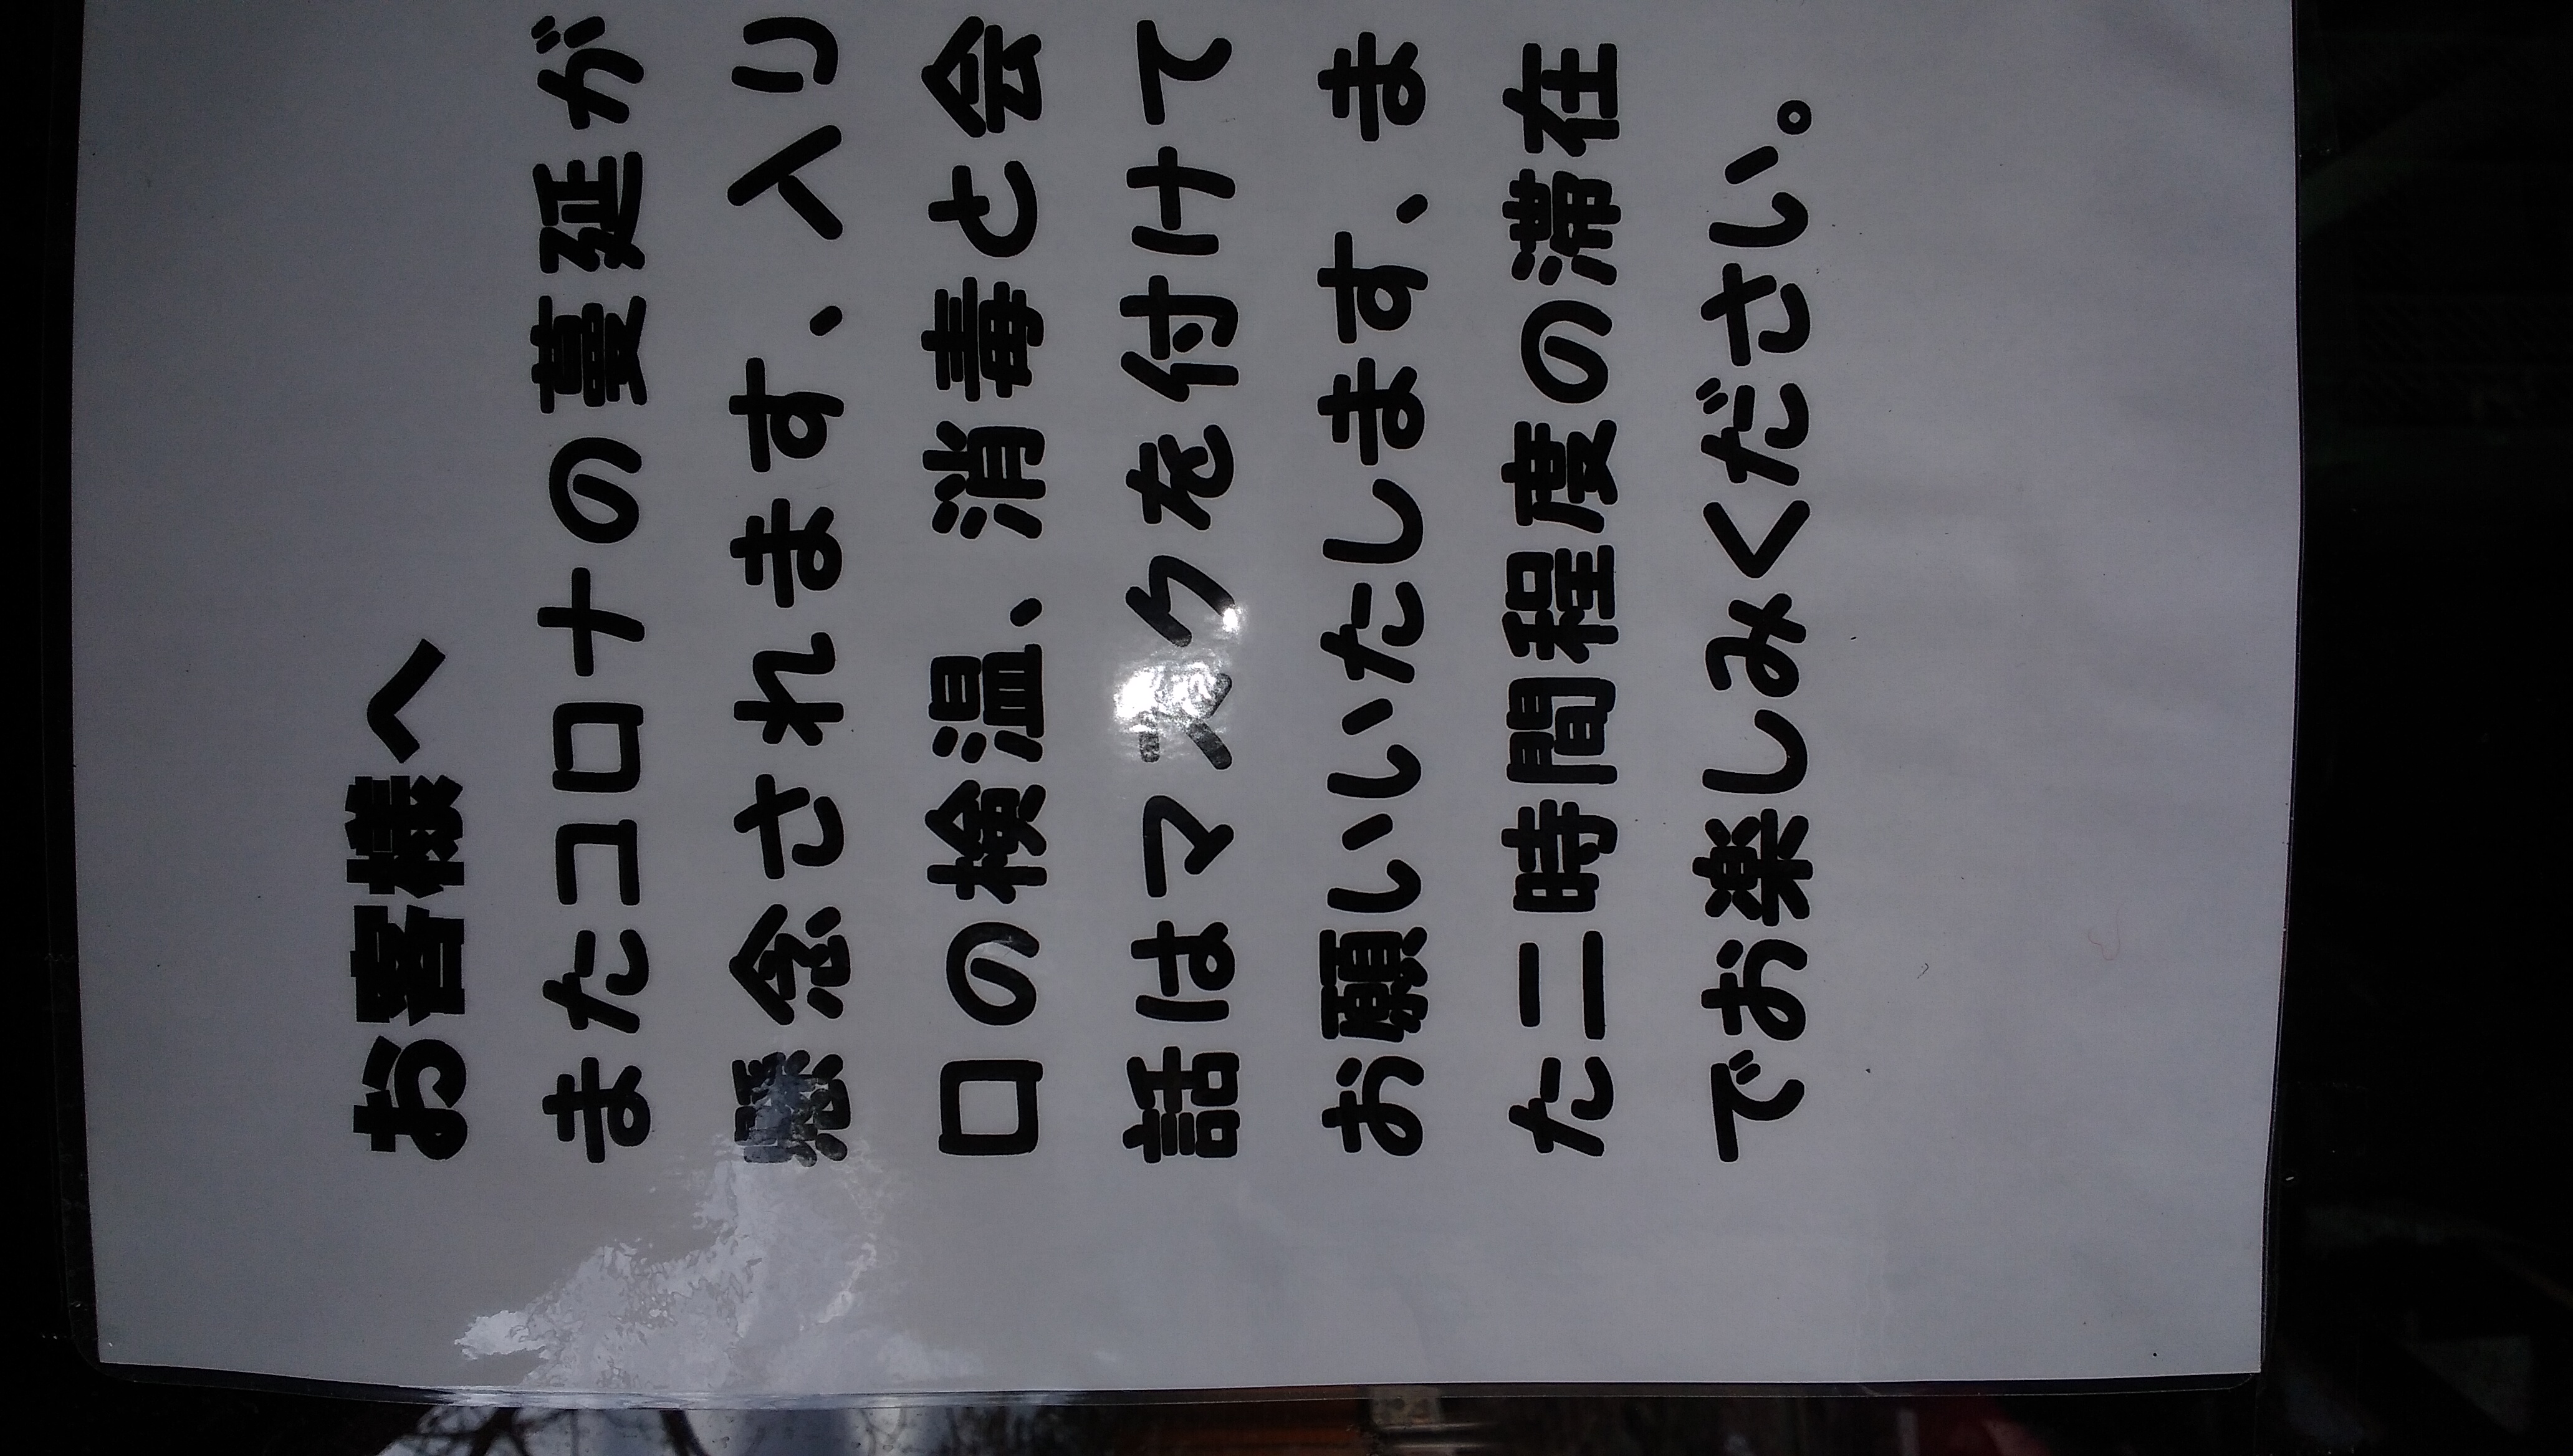 お客様へ
またコロナの蔓延が
懸念されます、入り
口の検温、消毒と会
話はマスクを付けて
お願しいいたします、ま
た二時間程度の滞在
でお楽しみください。